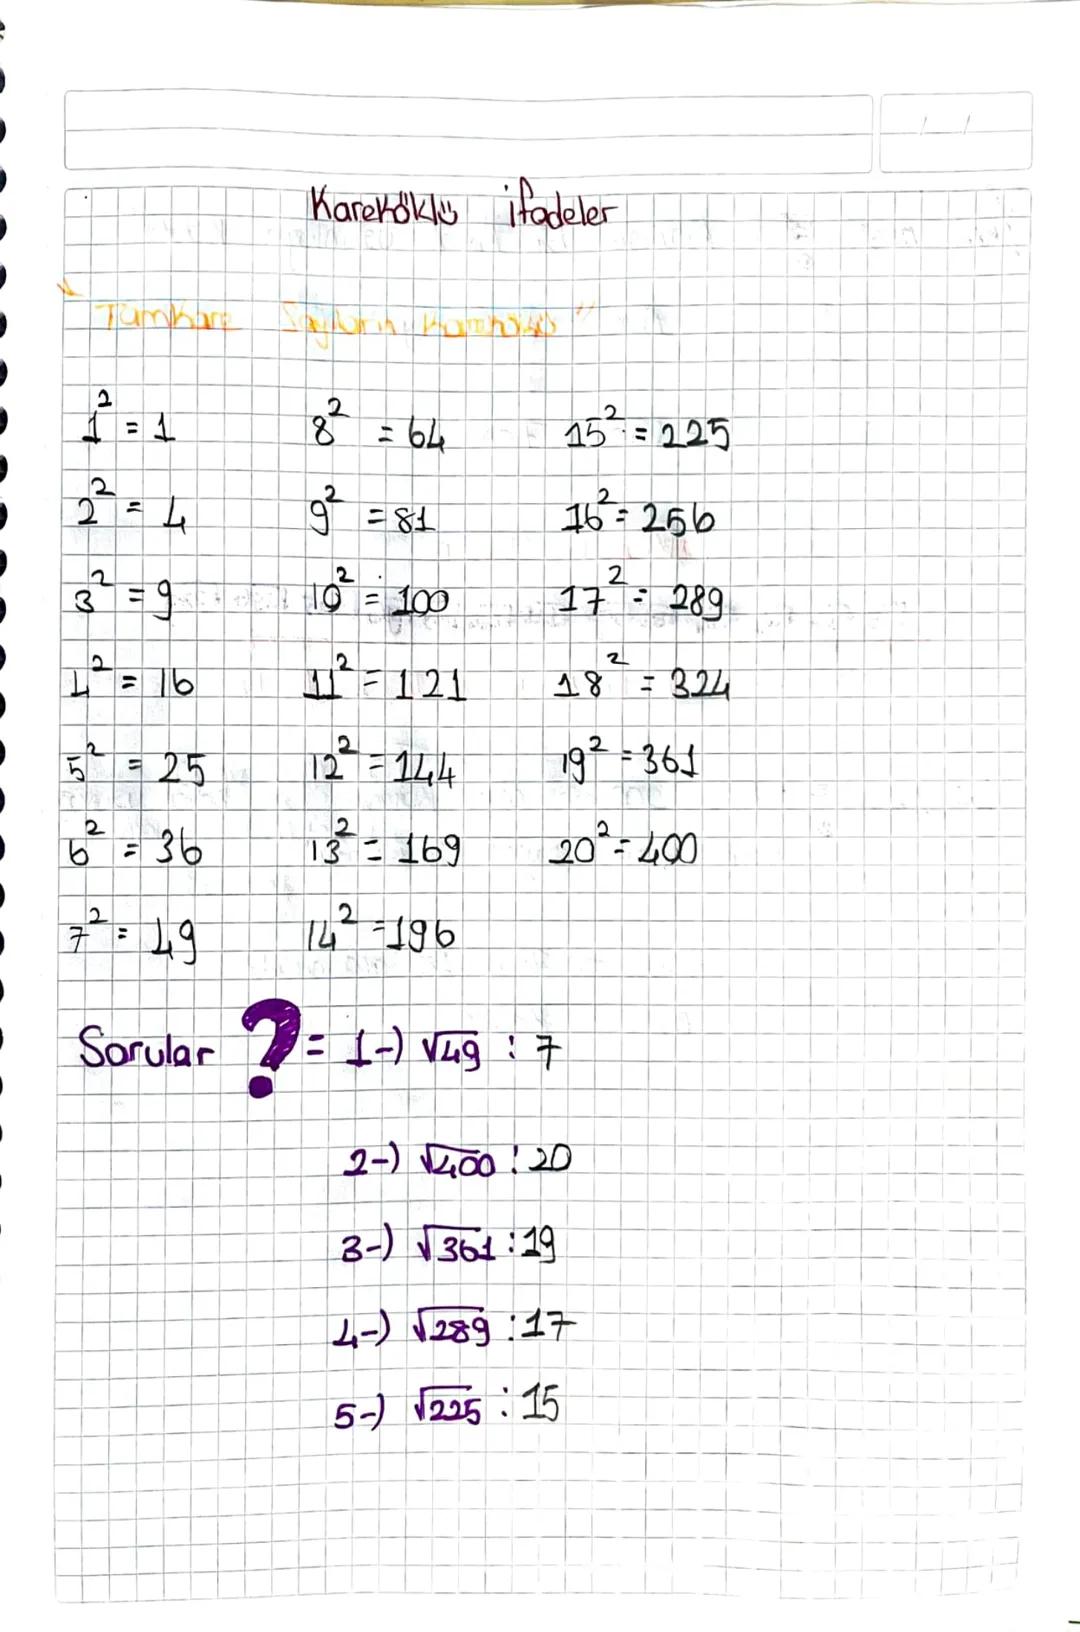 Kareköklü ifadeler
Tamkare Sayıların Karekökü "
1² = 1 8² = 64 15² = 225
2² = 4 9² = 81 16² = 256
3² = 9 10² = 100 17² = 289
4² = 16 11² = 121 18² = 324
5² = 25 12² = 144 19² = 361
6² = 36 13² = 169 20² = 400
7² = 49 14² = 196
Sorular ? = 1-) √49 : 7
2-) √400 : 20
3-) √361 : 19
4-) √289 : 17
5-) √225 : 15